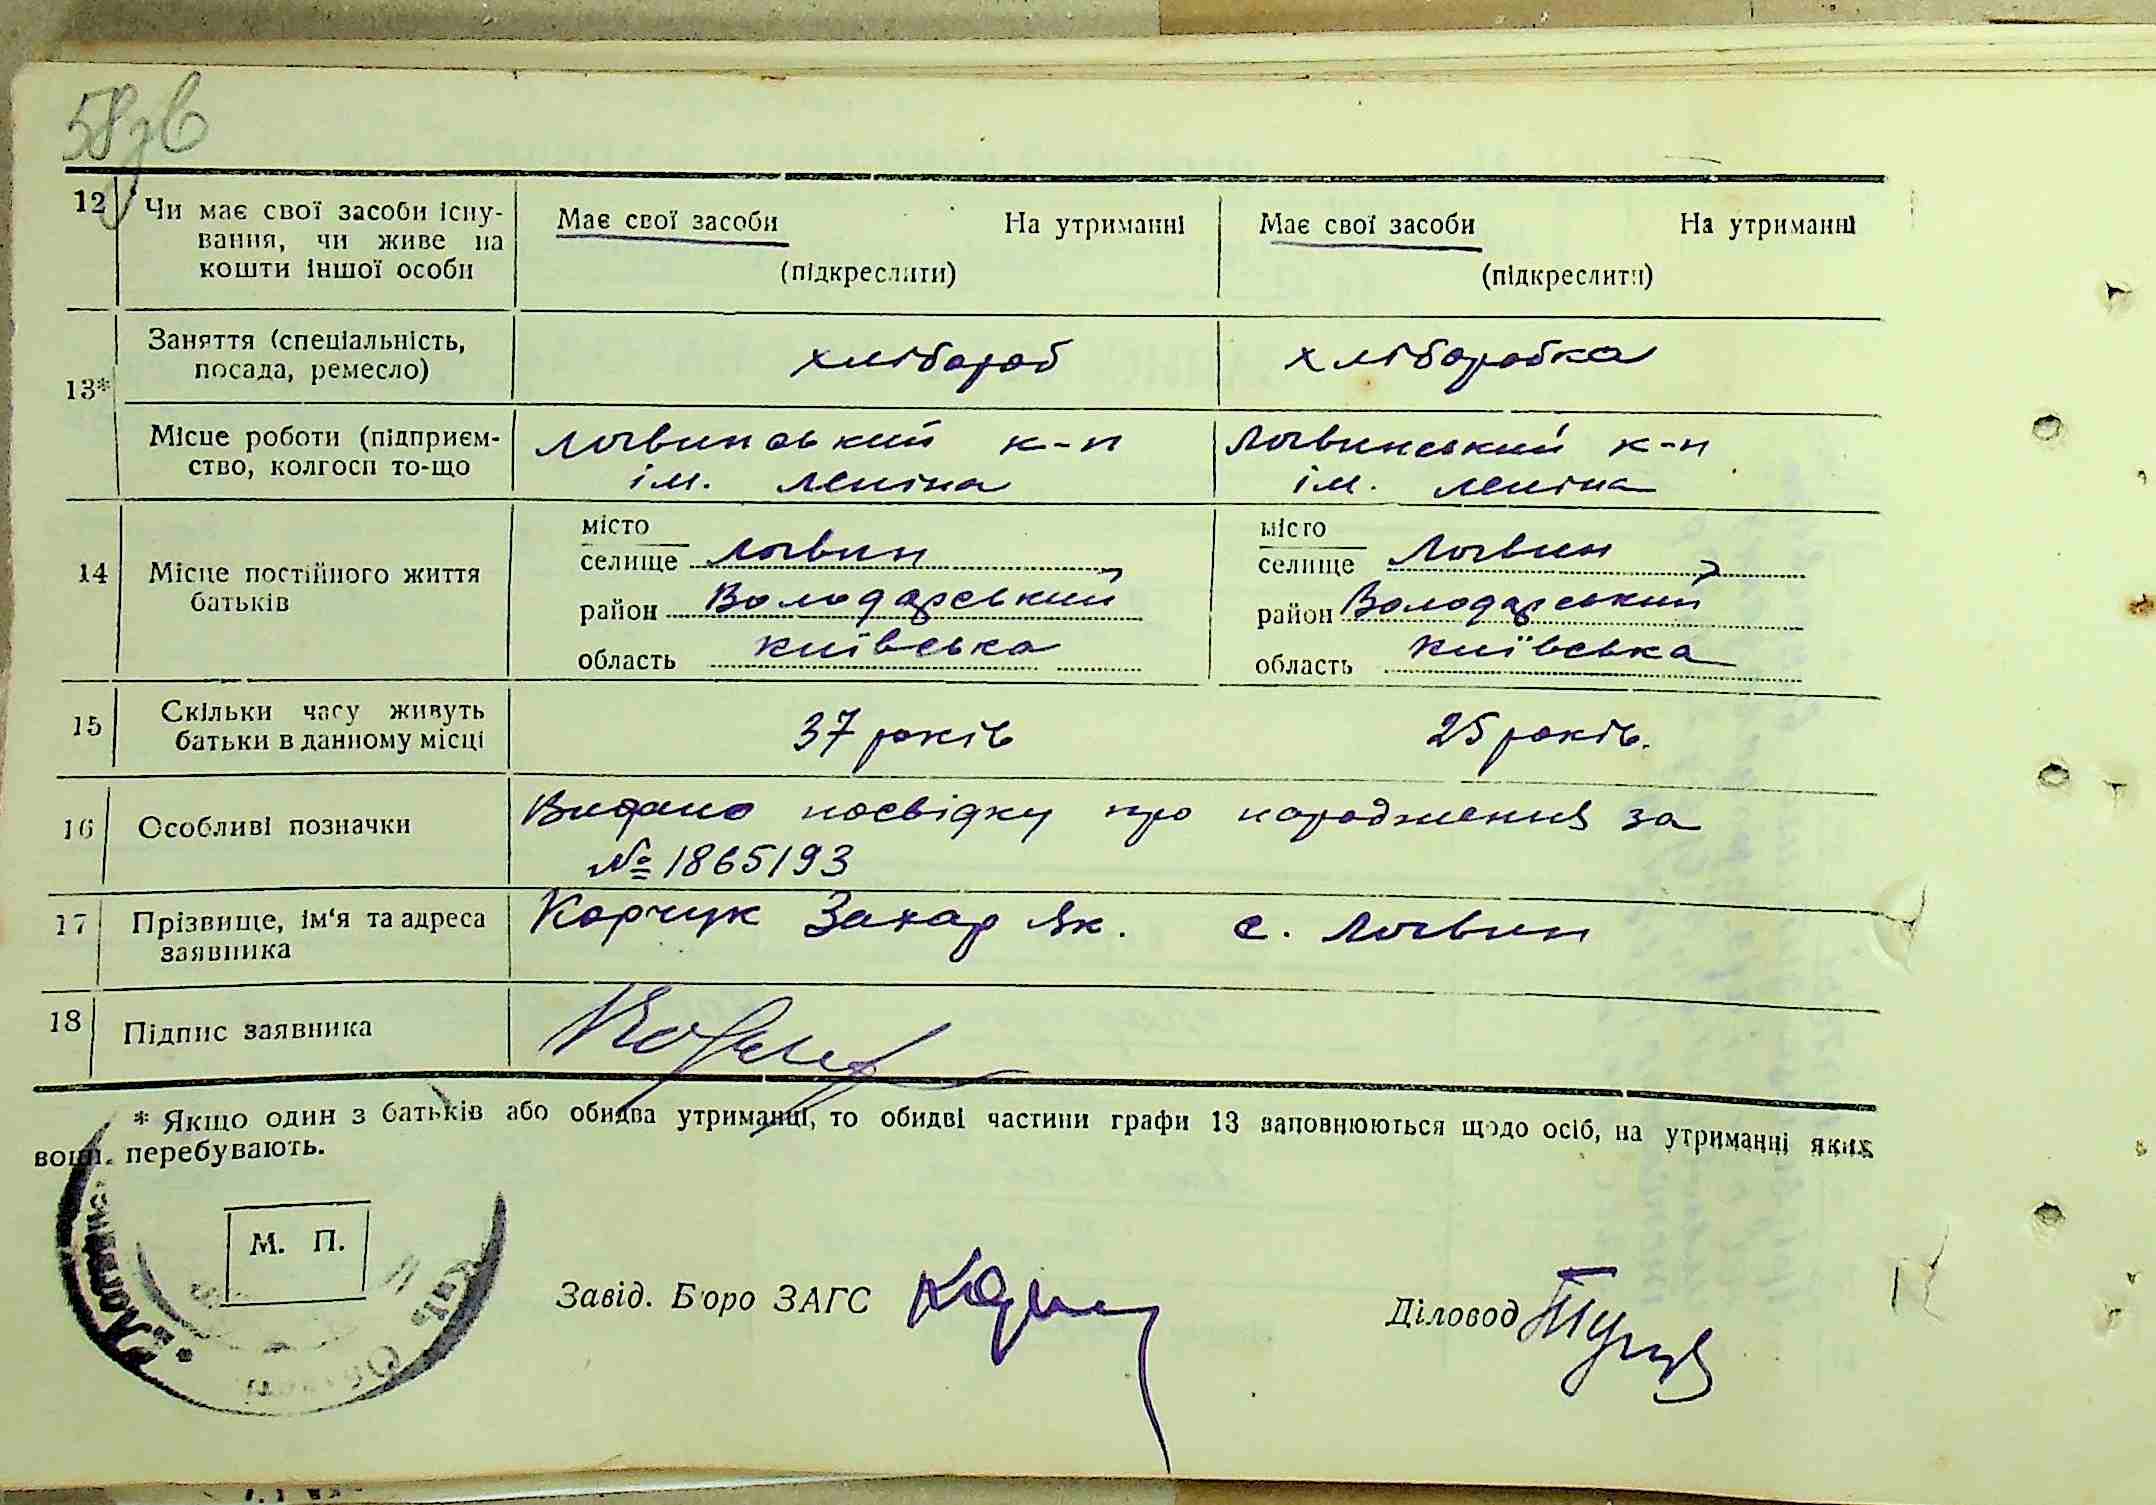 58зв
12 Чи має свої засоби існу-
вання, чи живе на
кошти іншої особи
Має свої засоби На утриманні
(підкреслити)
Має свої засоби На утриманні
(підкреслити)
13*
Заняття (спеціальність,
посада, ремесло)
хлібороб
хліборобка
Місце роботи (підприєм-
ство, колгосп то-що
Логвинський к-п
ім. Леніна
Логвинський к-п
ім. Леніна
14 Місце постійного життя
батьків
місто
селище Логвин
район Володарський
область Київська
місто
селище Логвин
район Володарський
область Київська
15 Скільки часу живуть
батьки в данному місці
37 років
25 років.
16 Особливі позначки
Видано посвідку про народження за
№ 1865193
17 Прізвище, ім'я та адреса
заявника
Корчук Захар Як. с. Логвин
18 Підпис заявника
* Якщо один з батьків або обидва утриманці, то обидві частини графи 13 заповнюються щодо осіб, на утриманні яких
вони перебувають.
М. П.
Завід. Бюро ЗАГС
Діловод